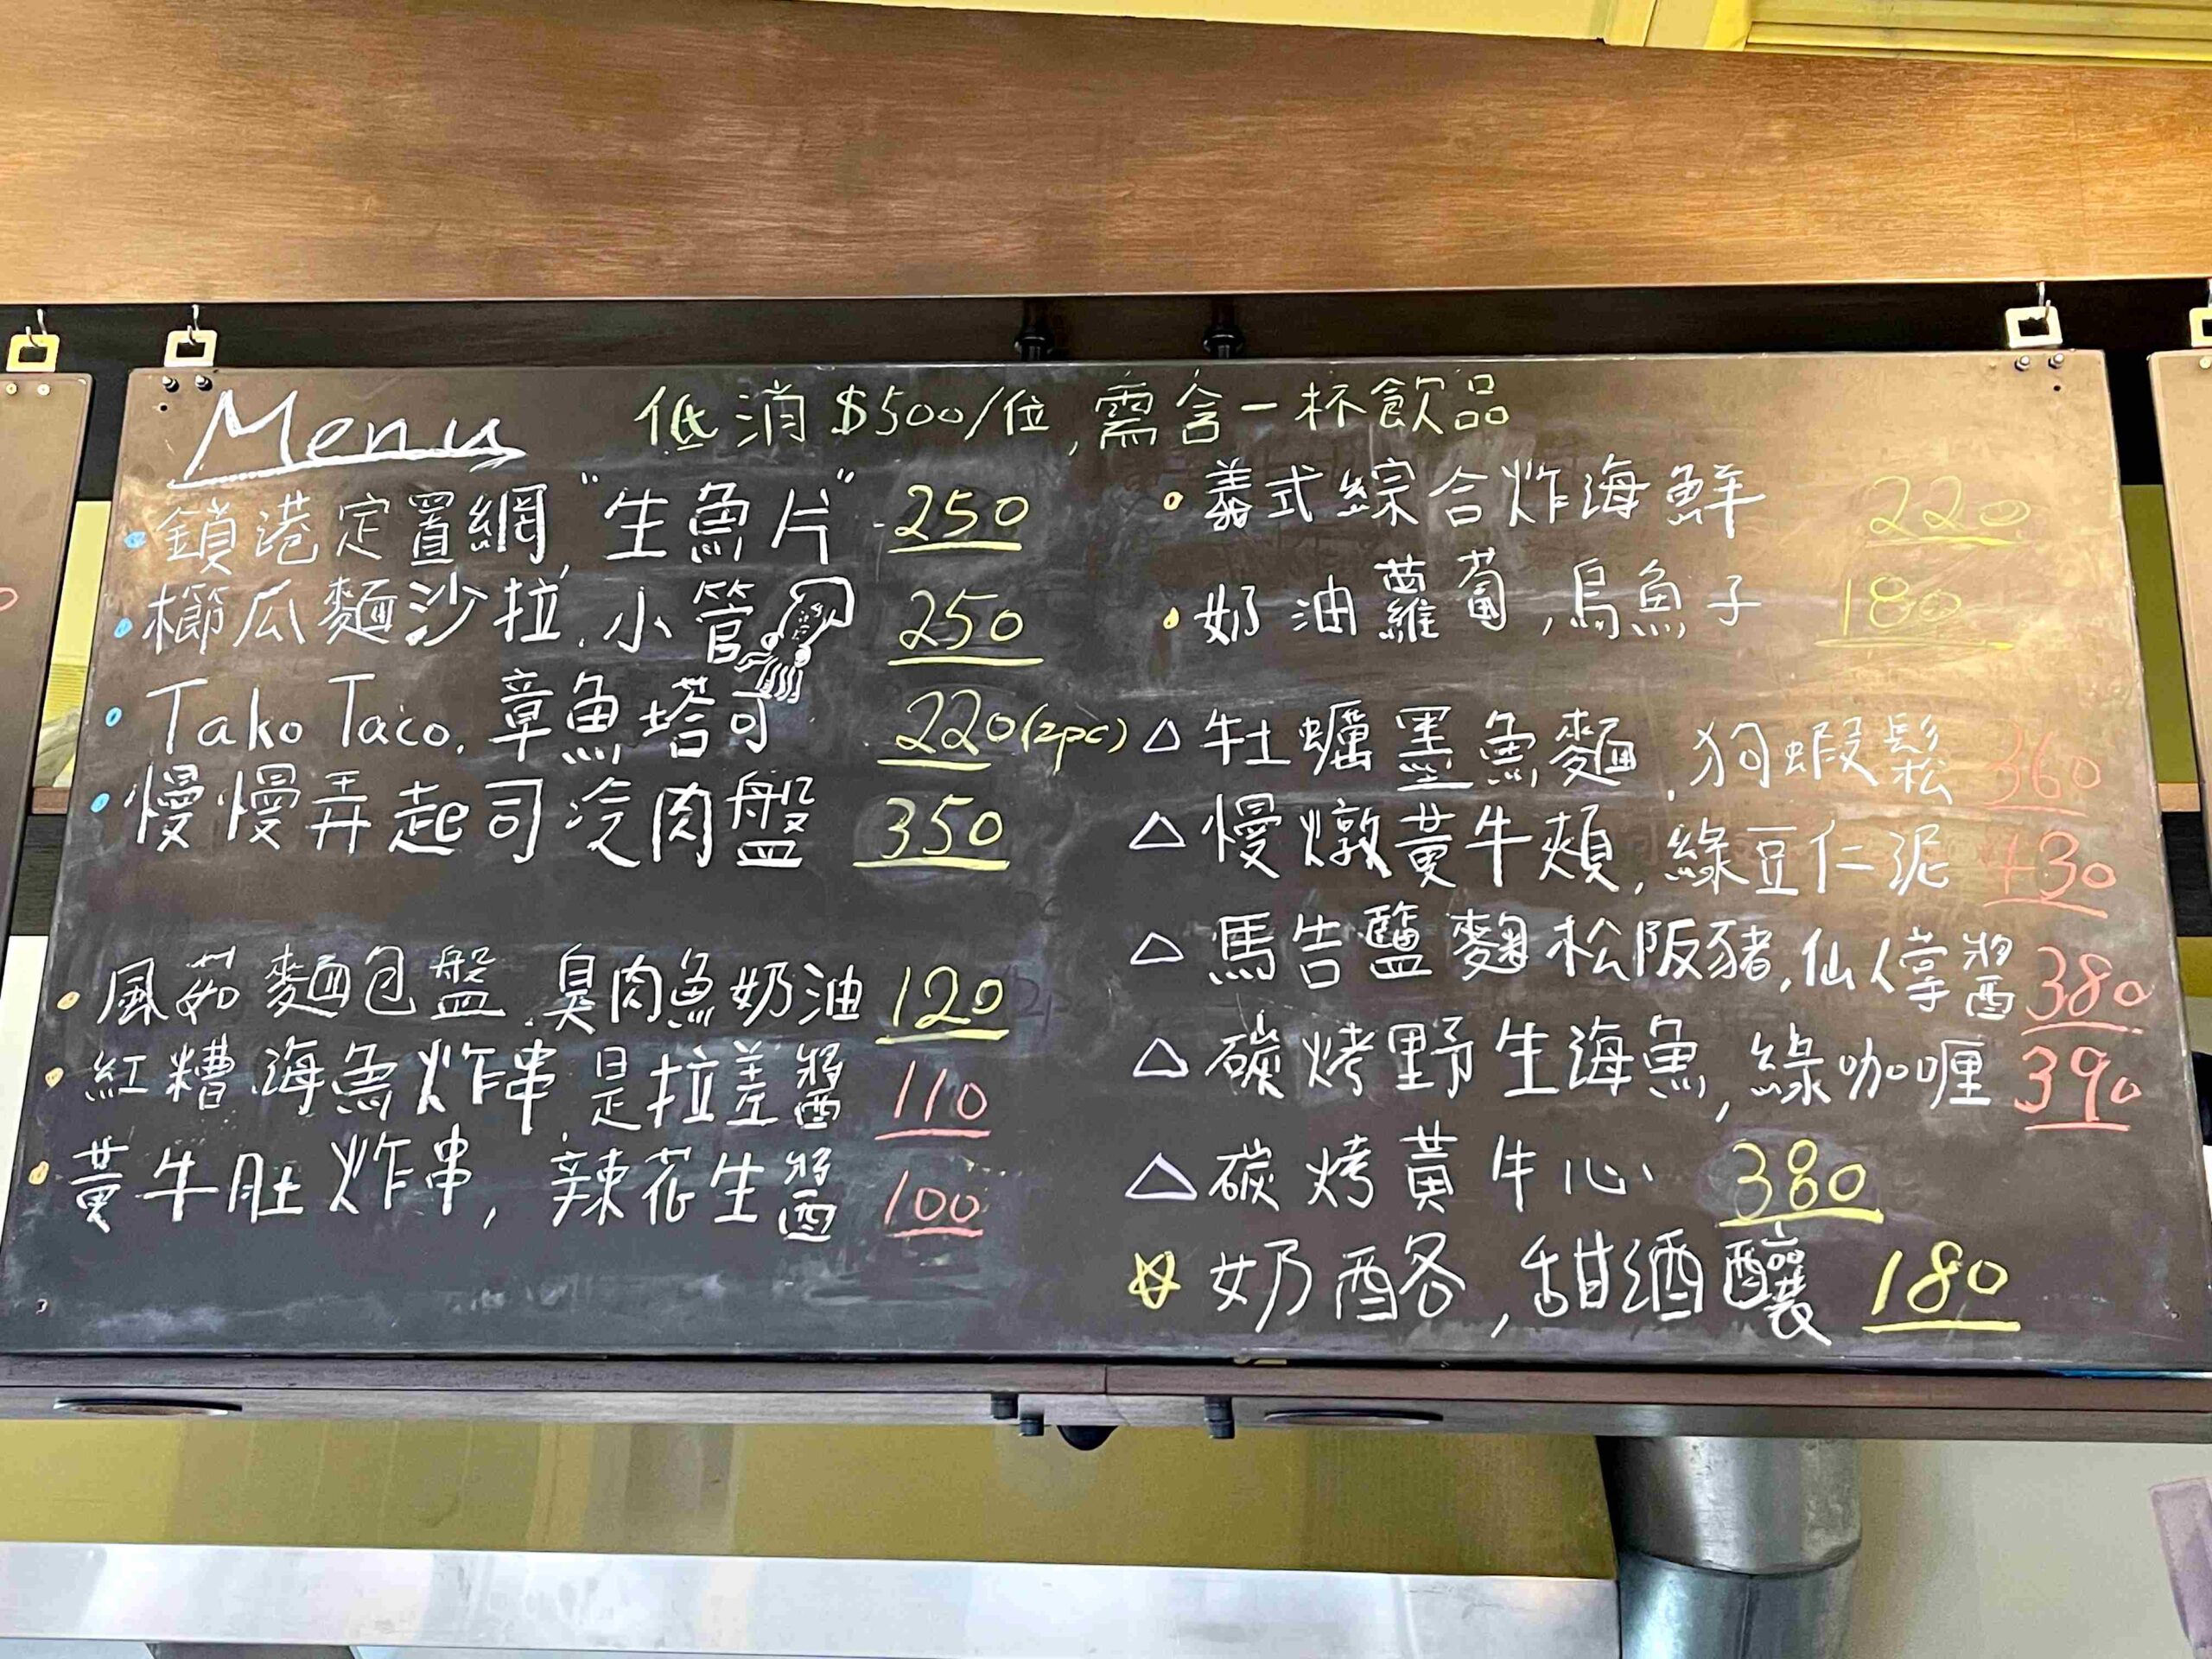 Menu
低消$500/位,需含一杯飲品
鎖港定置網,"生魚片" 250
櫛瓜麵沙拉,小管 250
Tako Taco.章魚塔可 220(2pc)
慢慢弄起司冷肉盤 350
風茹麵包盤,臭肉魚奶油 120
紅糟海魚炸串,是拉差醬 110
黃牛肚炸串,辣花生醬 100
義式綜合炸海鮮 220
奶油蘿蔔,烏魚子 180
△牡蠣墨魚麵,狗蝦鬆 360
△慢燉黃牛頰,綠豆仁泥 430
△馬告鹽麴松阪豬,仙人掌醬 380
△碳烤野生海魚,綠咖喱 390
△碳烤黃牛心 380
☆奶酪,甜酒釀 180